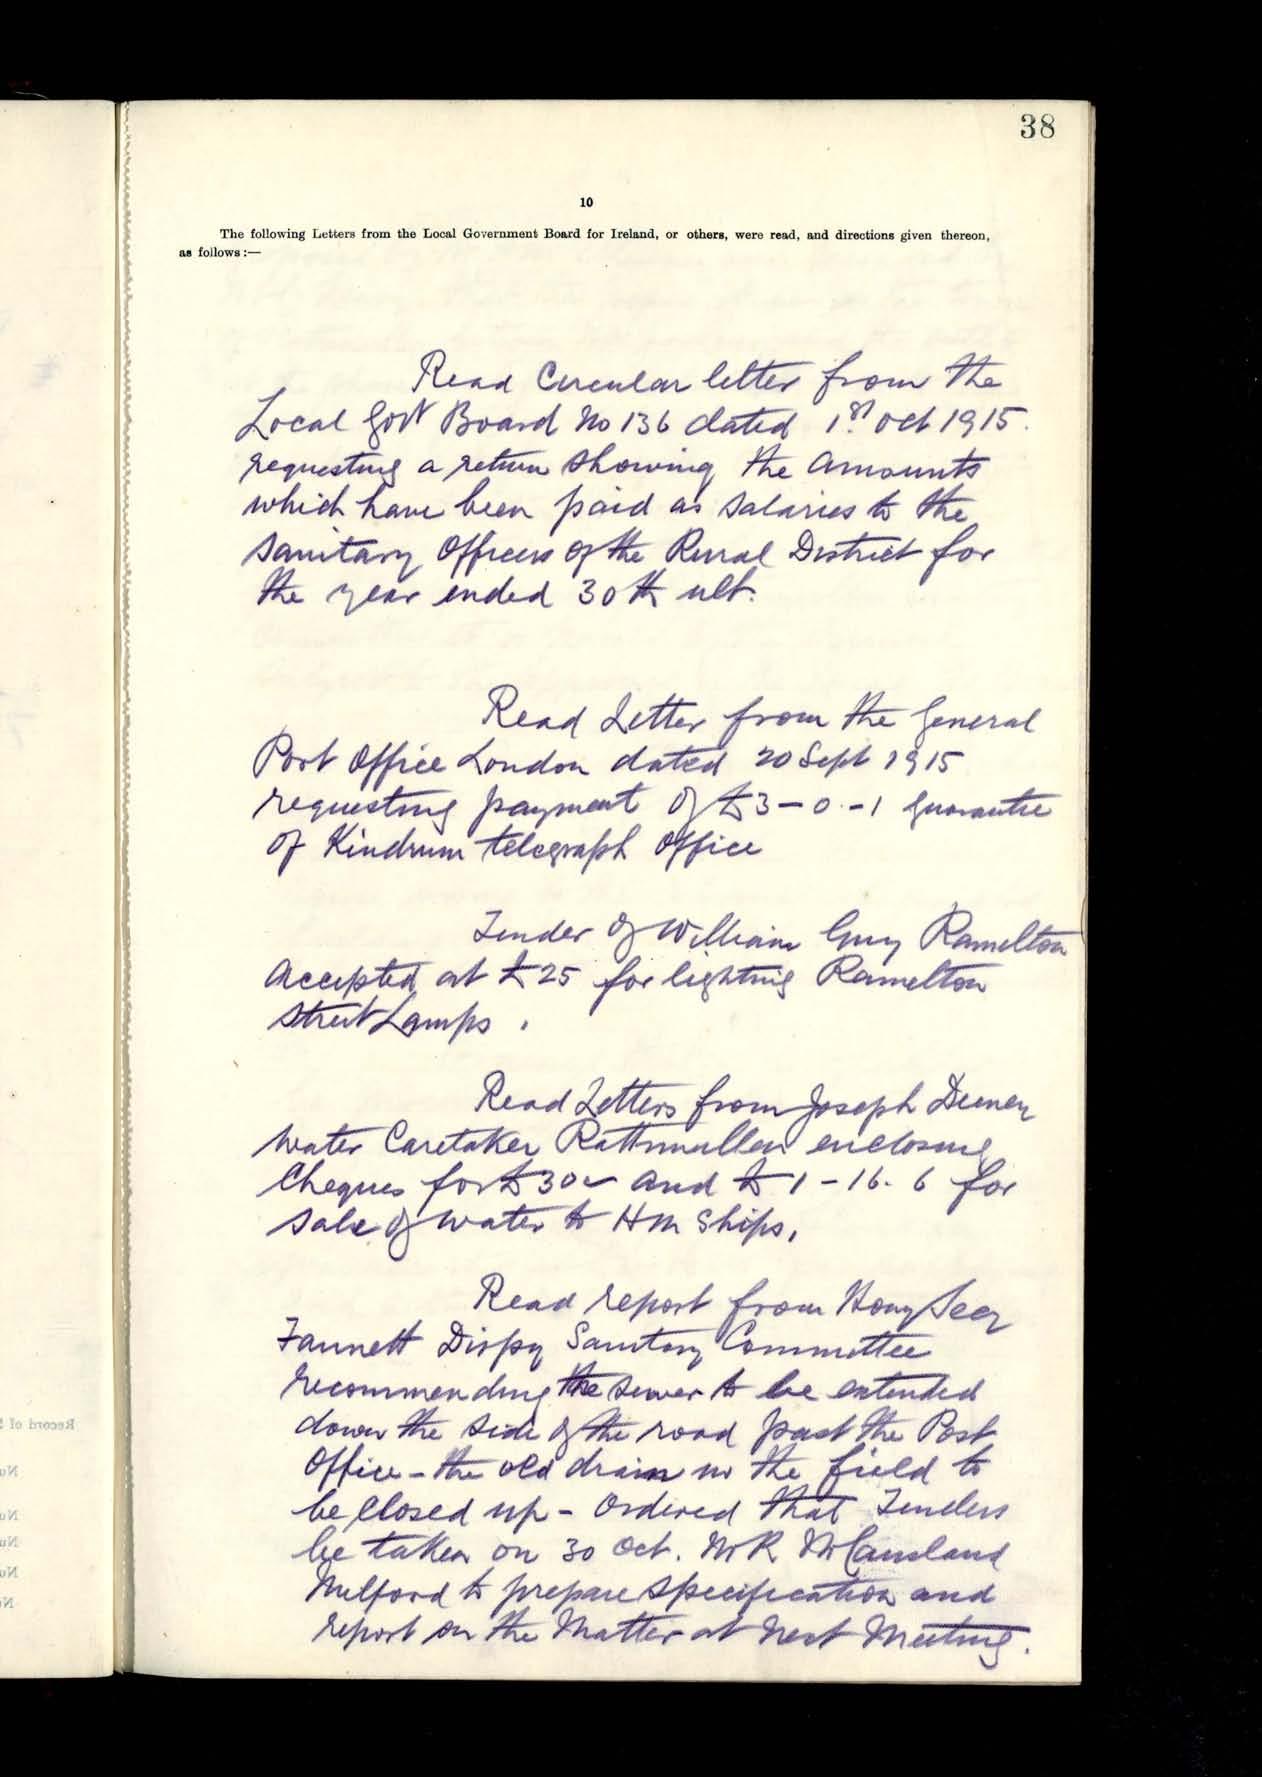 38
10
The following Letters from the Local Government Board for Ireland, or others, were read, and directions given thereon,
as follows :—
Read Circular letter from the
Local Govt Board No 136 dated 1st Oct 1915.
requesting a return showing the amounts
which have been paid as salaries to the
Sanitary Officers of the Rural District for
the year ended 30th ult.
Read Letter from the General
Post Office London dated 20 Sept 1915
requesting payment of £3-0-1 guarantee
of Kindrum telegraph Office
Tender of William Guy Ramelton
accepted at £25 for lighting Ramelton
Street Lamps.
Read Letters from Joseph Deeney
Water Caretaker Rathmullen enclosing
Cheques for £30 and £1-16-6 for
sale of water to HM Ships.
Read report from Hony Secy
Fannett Dispy Sanitary Committee
recommending the sewer to be extended
down the side of the road past the Post
Office - the old drain in the field to
be closed up - Ordered that Tenders
be taken on 30 Oct. Mr R McCausland
Milford to prepare specification and
report on the Matter at next Meeting.
Record of